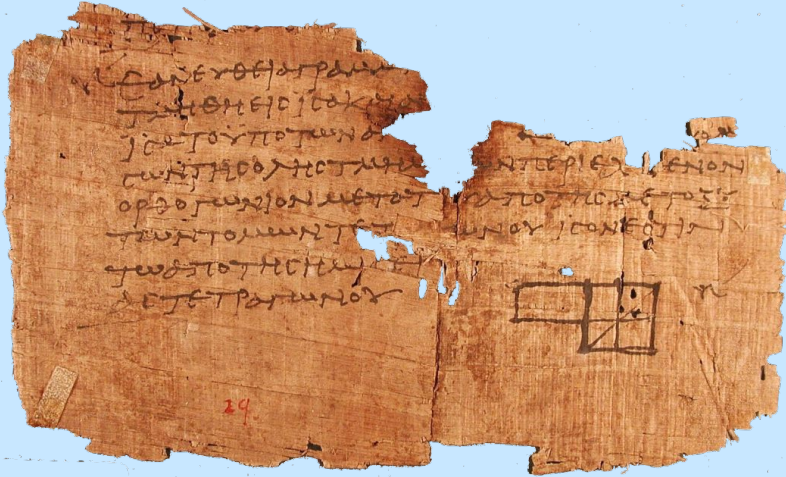 ΕΑΝ ΕΥΘΕΙΑ ΓΡΑΜΜ
ΤΜΗΘΗ ΕΙϹ ΙϹΑ ΚΑΙ Α
ΙϹΑ ΤΟ ΥΠΟ ΤΩΝ Α
ϹΩΝ ΤΗϹ ΟΛΗϹ ΤΜΗΜ ΩΝ ΠΕΡΙΕΧ ΕΝΟΝ
ΟΡΘΟΓΩΝΙΟΝ ΜΕΤΑ ΤΟ ΑΠΟ ΤΗϹ ΜΕΤΟΞΥ
ΤΩΝ ΤΟΜΩΝ ΤΕΤ ΩΝΟΥ ΙϹΟΝ ΕϹΤΙΝ
ΤΩ ΑΠΟ ΤΗϹ ΗΜΙ
ΑϹ ΤΕΤΡΑΓΩΝΟΥ
29